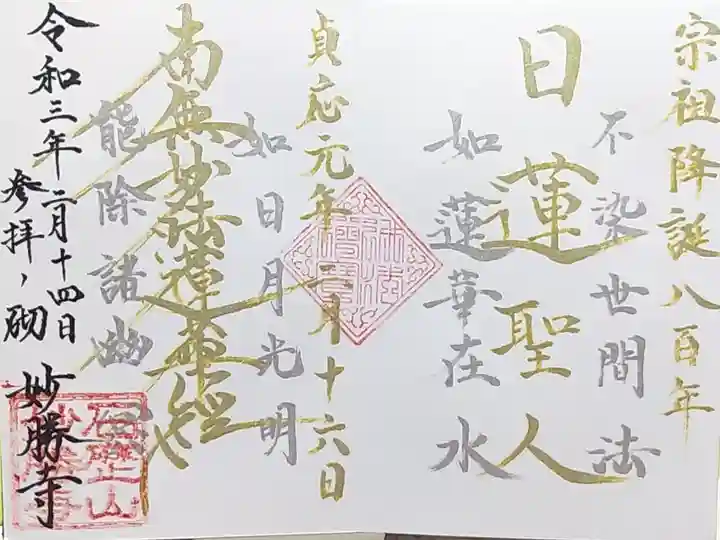 宗祖降誕八百年
不染世間法
日蓮聖人
如蓮華在水
貞応元年二月十六日
如日月光明
南無妙法蓮華経
能除諸幽冥
令和三年二月十四日
参拝ノ砌
妙勝寺